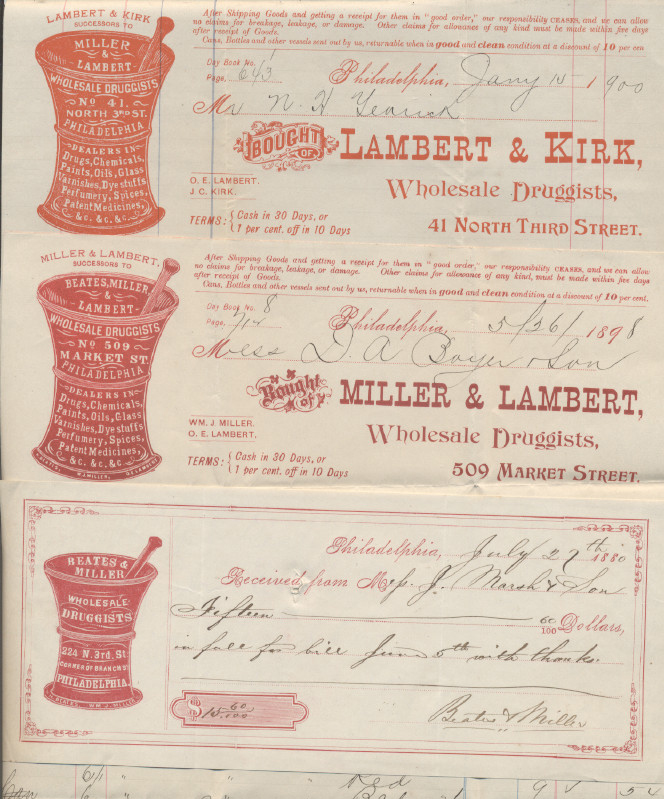 LAMBERT & KIRK
SUCCESSORS TO
MILLER
&
LAMBERT
WHOLESALE DRUGGISTS
No 41.
NORTH 3RD ST.
PHILADELPHIA
DEALERS IN
Drugs, Chemicals,
Paints, Oils, Glass
Varnishes, Dye stuffs
Perfumery, Spices,
Patent Medicines,
&c. &c. &c.
After Shipping Goods and getting a receipt for them in "good order," our responsibility CEASES, and we can allow
no claims for breakage, leakage, or damage. Other claims for allowance of any kind must be made within five days
after receipt of Goods.
Cans, Bottles and other vessels sent out by us, returnable when in good and clean condition at a discount of 10 per cen
Day Book No. 1
Page, 643
Philadelphia, Jany 15 1900
Mr N. H
BOUGHT OF
LAMBERT & KIRK,
O. E. LAMBERT.
J. C. KIRK.
Wholesale Druggists,
TERMS: { Cash in 30 Days, or
1 per cent. off in 10 Days
41 NORTH THIRD STREET.
MILLER & LAMBERT,
SUCCESSORS TO
BEATES, MILLER
&
LAMBERT
WHOLESALE DRUGGISTS
No 509
MARKET ST.
PHILADELPHIA
DEALERS IN
Drugs, Chemicals,
Paints, Oils, Glass
Varnishes, Dye stuffs
Perfumery, Spices,
Patent Medicines,
&c. &c. &c.
After Shipping Goods and getting a receipt for them in "good order," our responsibility CEASES, and we can allow
no claims for breakage, leakage, or damage. Other claims for allowance of any kind, must be made within five days
after receipt of Goods.
Cans, Bottles and other vessels sent out by us, returnable when in good and clean condition at a discount of 10 per cent.
Day Book No. 8
Page, 712
Philadelphia, 5/26/ 1898
Mess D. A Boyer & Son
Bought of
MILLER & LAMBERT,
WM. J. MILLER.
O. E. LAMBERT.
Wholesale Druggists,
TERMS: { Cash in 30 Days, or
1 per cent. off in 10 Days
509 MARKET STREET.
BEATES &
MILLER
WHOLESALE
DRUGGISTS
224 N. 3rd. St.
CORNER OF BRANCH ST.
PHILADELPHIA.
WM J. MILLER
Philadelphia, July 27th 1880
Received from Mess. J. Marsh & Son
Fifteen 60/100 Dollars,
in full for bill June 5th with thanks.
$ 15 60/100
Beates & Miller